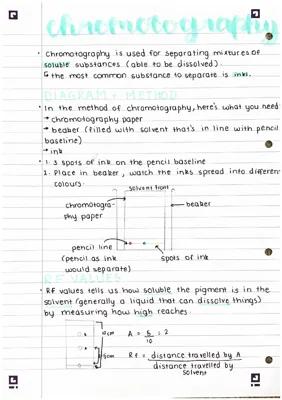 chromotography
· Chromotography is used for separating mixtures of
soluble substances (able to be dissolved).
↳ the most common substance to separate is inks.
DIAGRAM + METHOD
· In the method of chromotography, here's what you need
→ chromotography paper
→ beaker (filled with solvent that's in line with pencil
baseline)
→ ink
· 1. 3 spots of ink on the pencil baseline
2. Place in beaker, watch the inks spread into different
colours.
solvent front
chromotogra-
phy paper
← beaker
pencil line
(pencil as ink
would separate)
spots of ink
RF VALUES
· RF values tells us how soluble the pigment is in the
solvent (generally a liquid that can dissolve things)
by measuring how high reaches.
10cm
A = 5/10 = 2
5cm
RF = distance travelled by A
distance travelled by
solvent